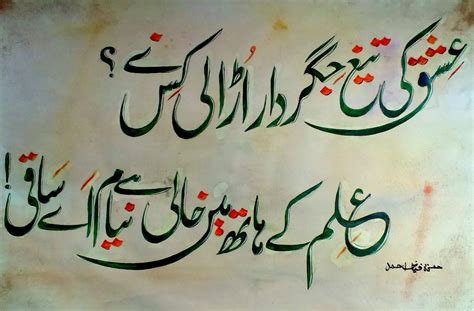 عِشق کی تیغِ جِگر دار اُڑا لی کِس نے ؟
عِلم کے ہاتھ میں خالی ہے نیام اَے سَاقی !